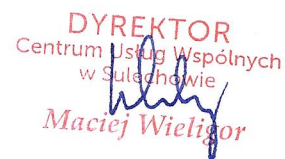 DYREKTOR
Centrum Usług Wspólnych
w Sulechowie
Maciej Wieligor